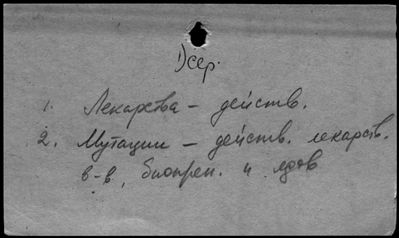 1) сер.
1. Лекарства – действ.
2. Мутации – действ. лекарств.
в-в, биопреп. и ядов